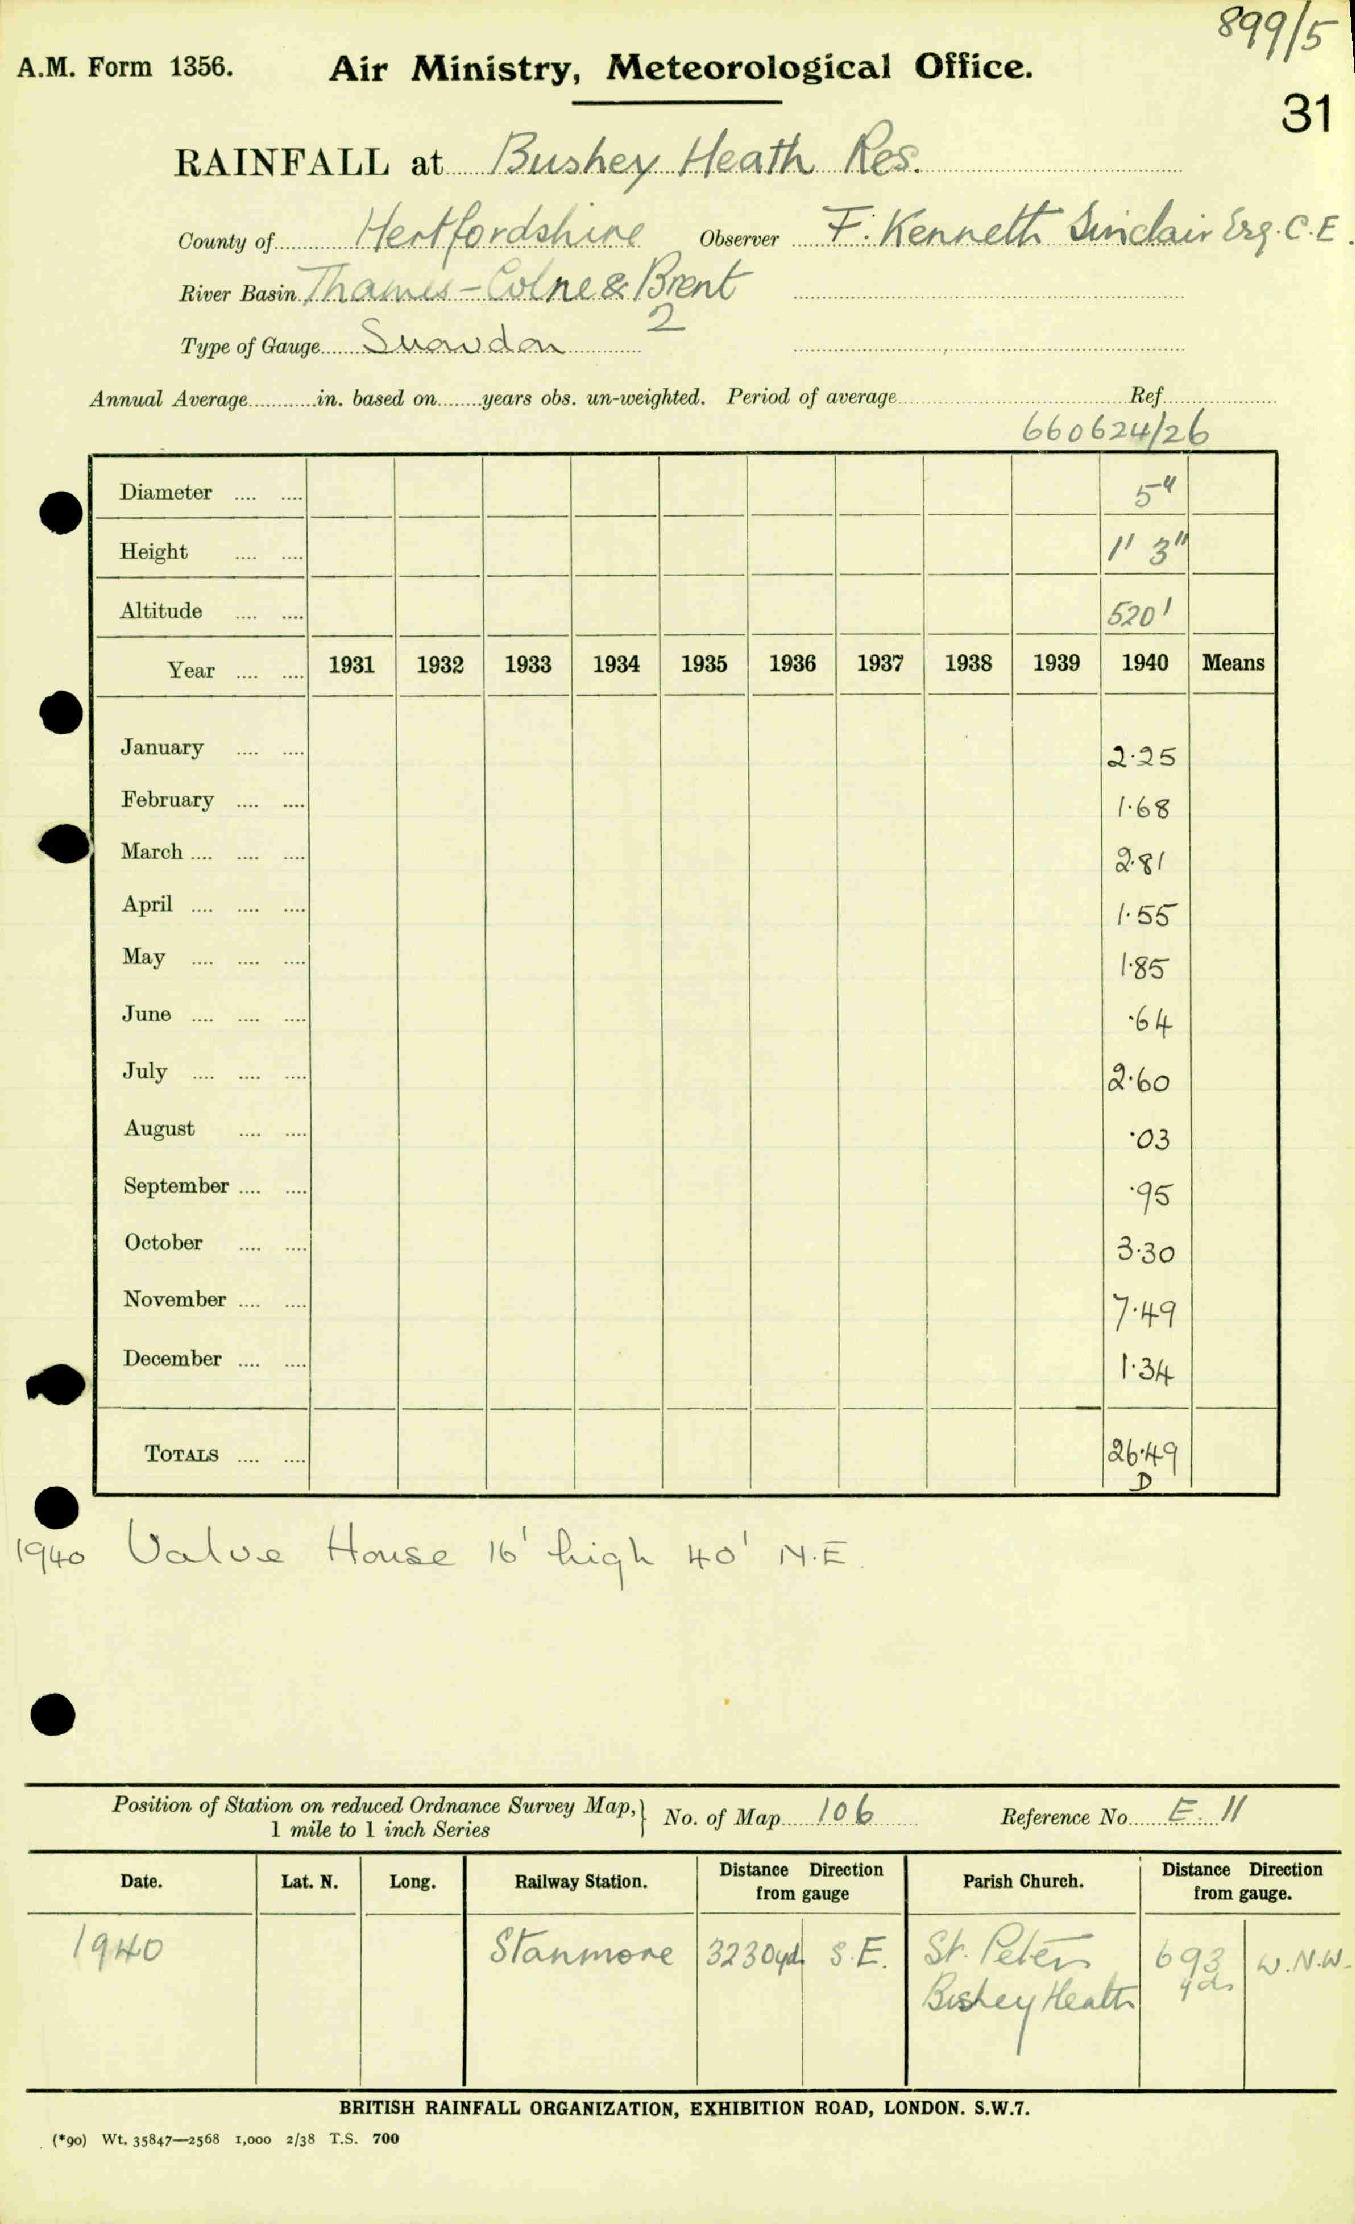 899/5
A.M. Form 1356. Air Ministry, Meteorological Office.
31
RAINFALL at Bushey Heath Res.
County of Hertfordshire Observer F. Kenneth Sinclair Esq. C.E.
River Basin Thames - Colne & Brent
2
Type of Gauge Snowdon
Annual Average in. based on years obs. un-weighted. Period of average Ref
660624/26
Diameter .... .... 5"
Height .... .... 1' 3"
Altitude .... .... 520'
Year .... .... 1931 1932 1933 1934 1935 1936 1937 1938 1939 1940 Means
January .... .... 2.25
February .... .... 1.68
March .... .... .... 2.81
April .... .... .... 1.55
May .... .... .... 1.85
June .... .... .... .64
July .... .... .... 2.60
August .... .... .03
September .... .... .95
October .... .... 3.30
November .... .... 7.49
December .... .... 1.34
TOTALS .... .... 26.49
D
1940 Valve House 16' high 40' N.E.
Position of Station on reduced Ordnance Survey Map, 1 mile to 1 inch Series } No. of Map 106 Reference No E. 11
Date. Lat. N. Long. Railway Station. Distance Direction from gauge Parish Church. Distance Direction from gauge.
1940 Stanmore 3230 yds S.E. St. Peters 693 yds W.N.W.
Bushey Heath
BRITISH RAINFALL ORGANIZATION, EXHIBITION ROAD, LONDON. S.W.7.
(*90) Wt. 35847—2568 1,000 2/38 T.S. 700